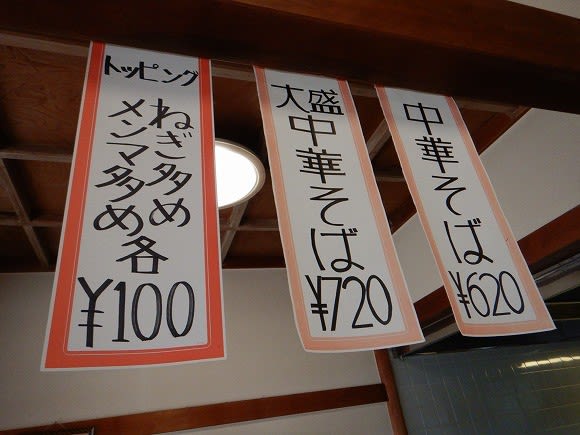 中華そば
¥620
大盛
中華そば
¥720
トッピング
ねぎ多め
メンマ多め各
¥100